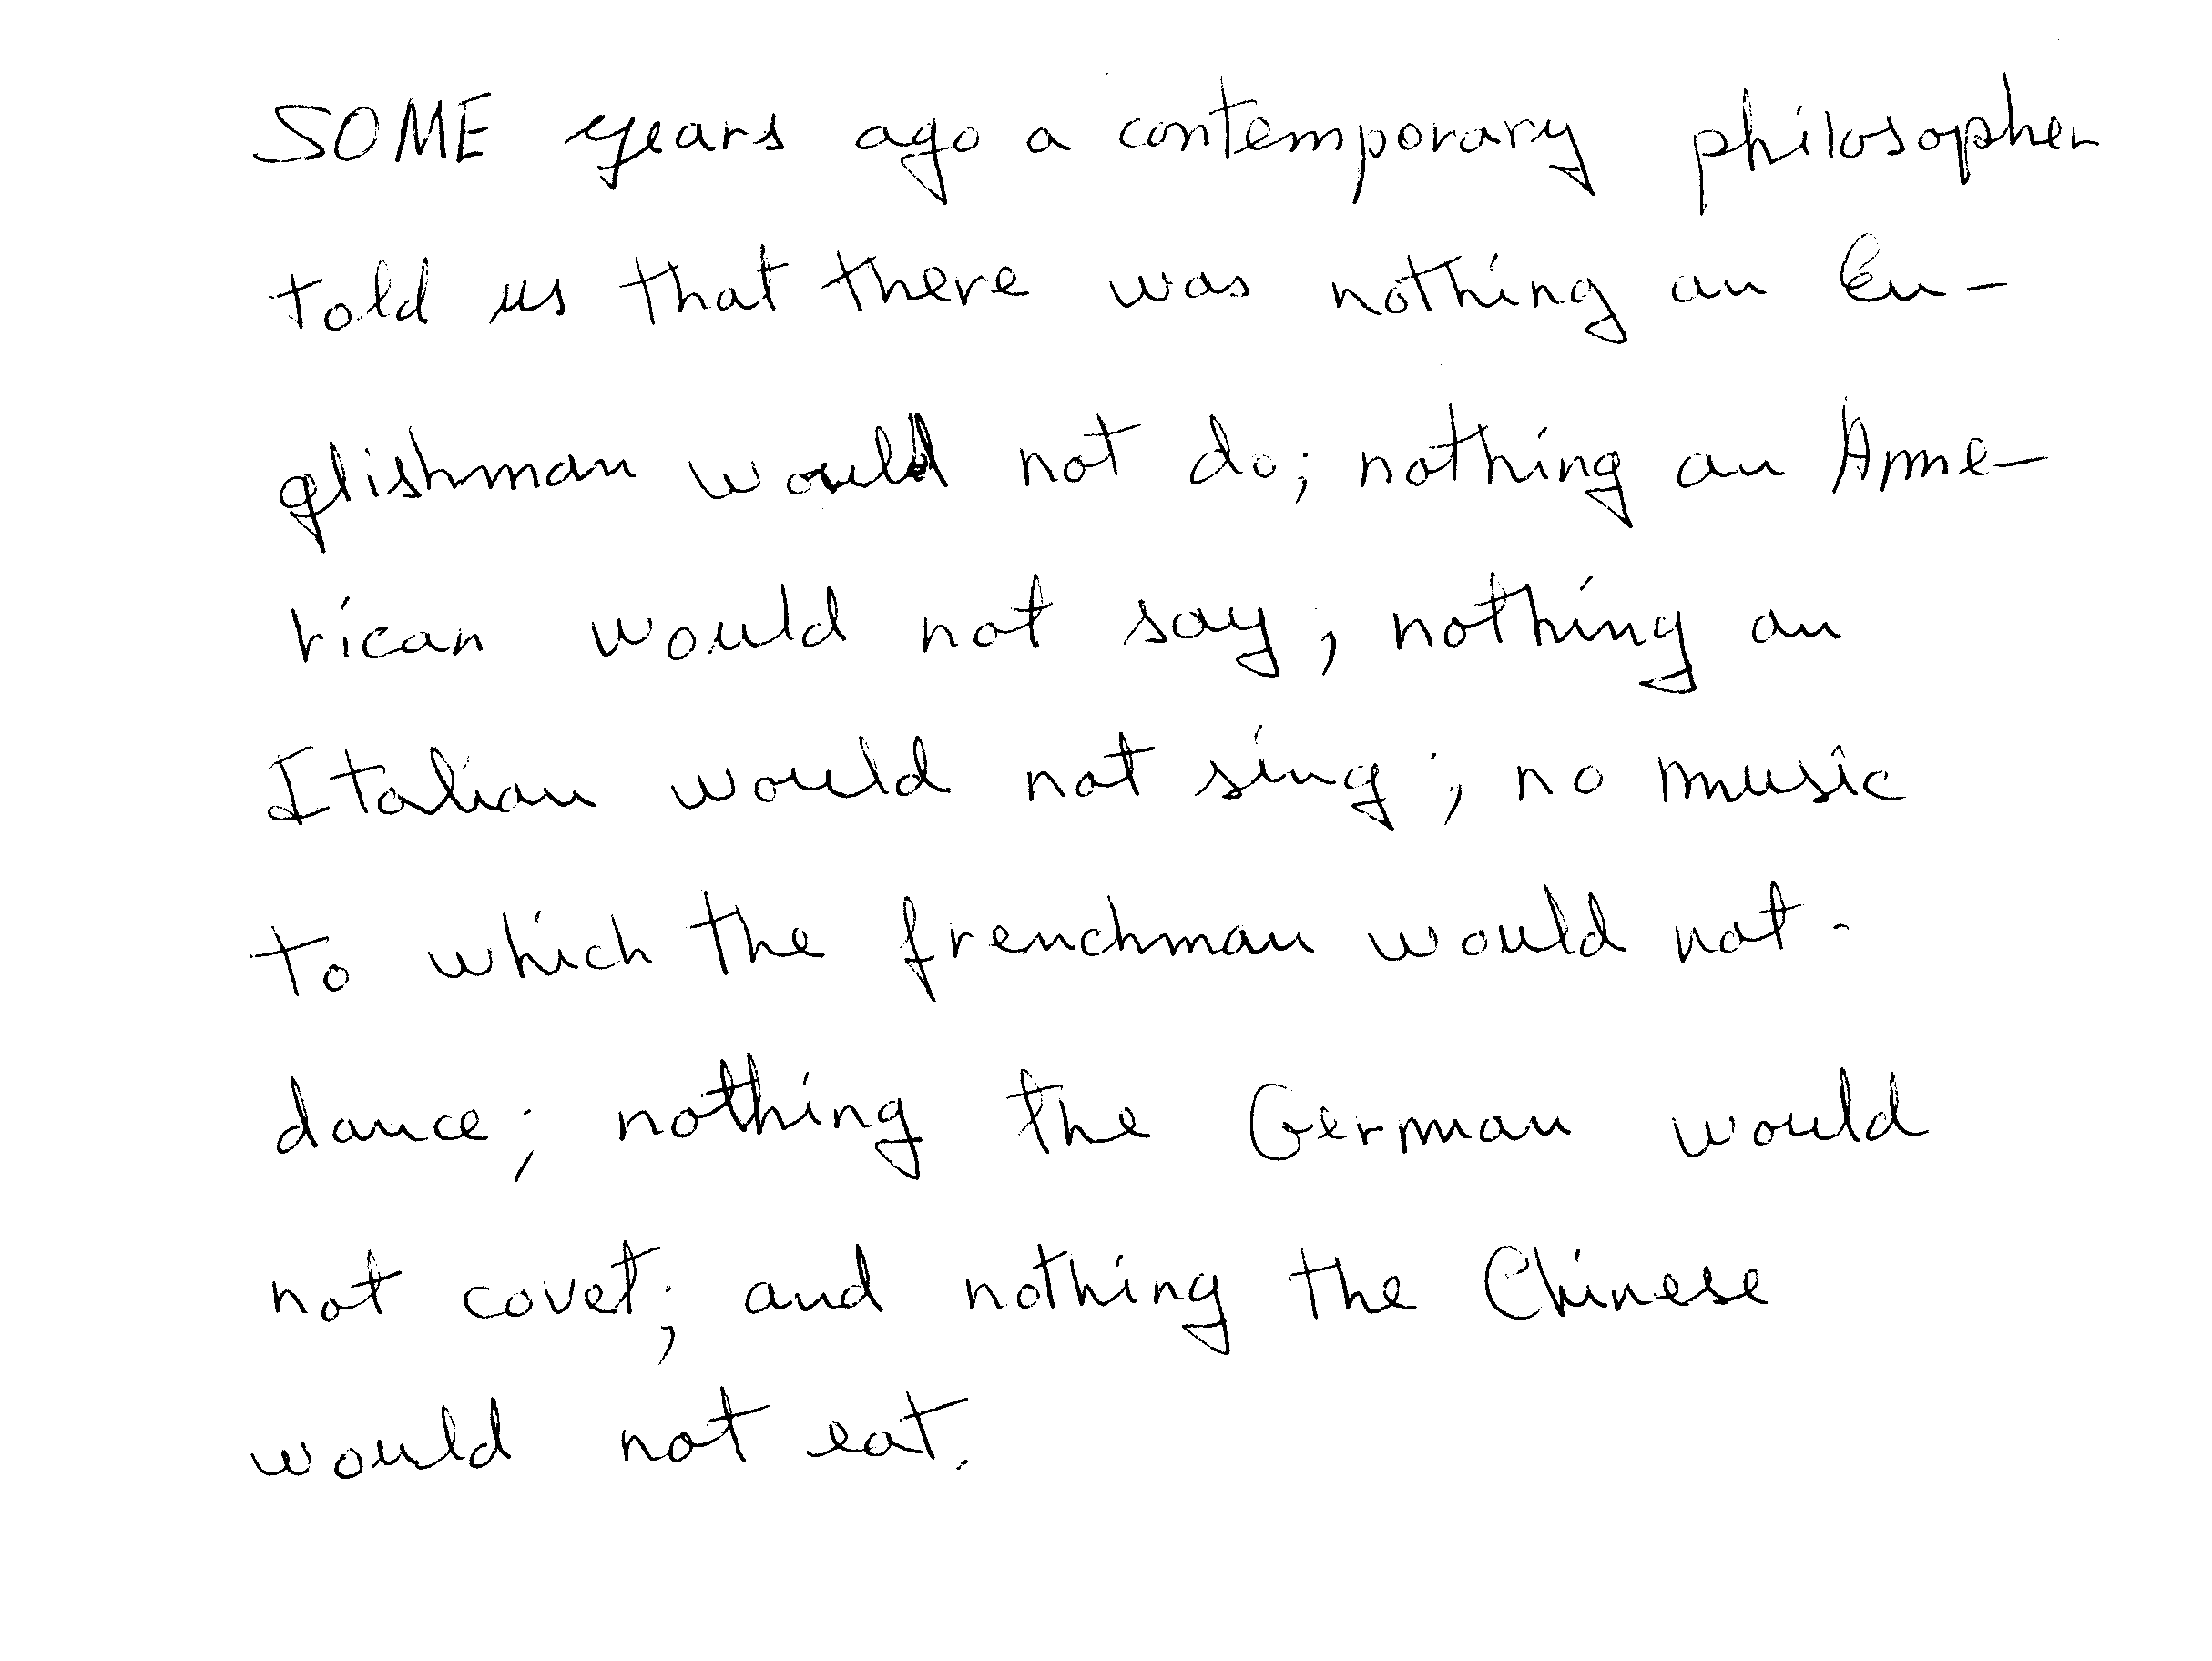 SOME years ago a contemporary philosopher
told us that there was nothing an En-
glishman would not do; nothing an Ame-
rican would not say; nothing an
Italian would not sing; no music
to which the frenchman would not.
dance; nothing the German would
not covet; and nothing the Chinese
would not eat.